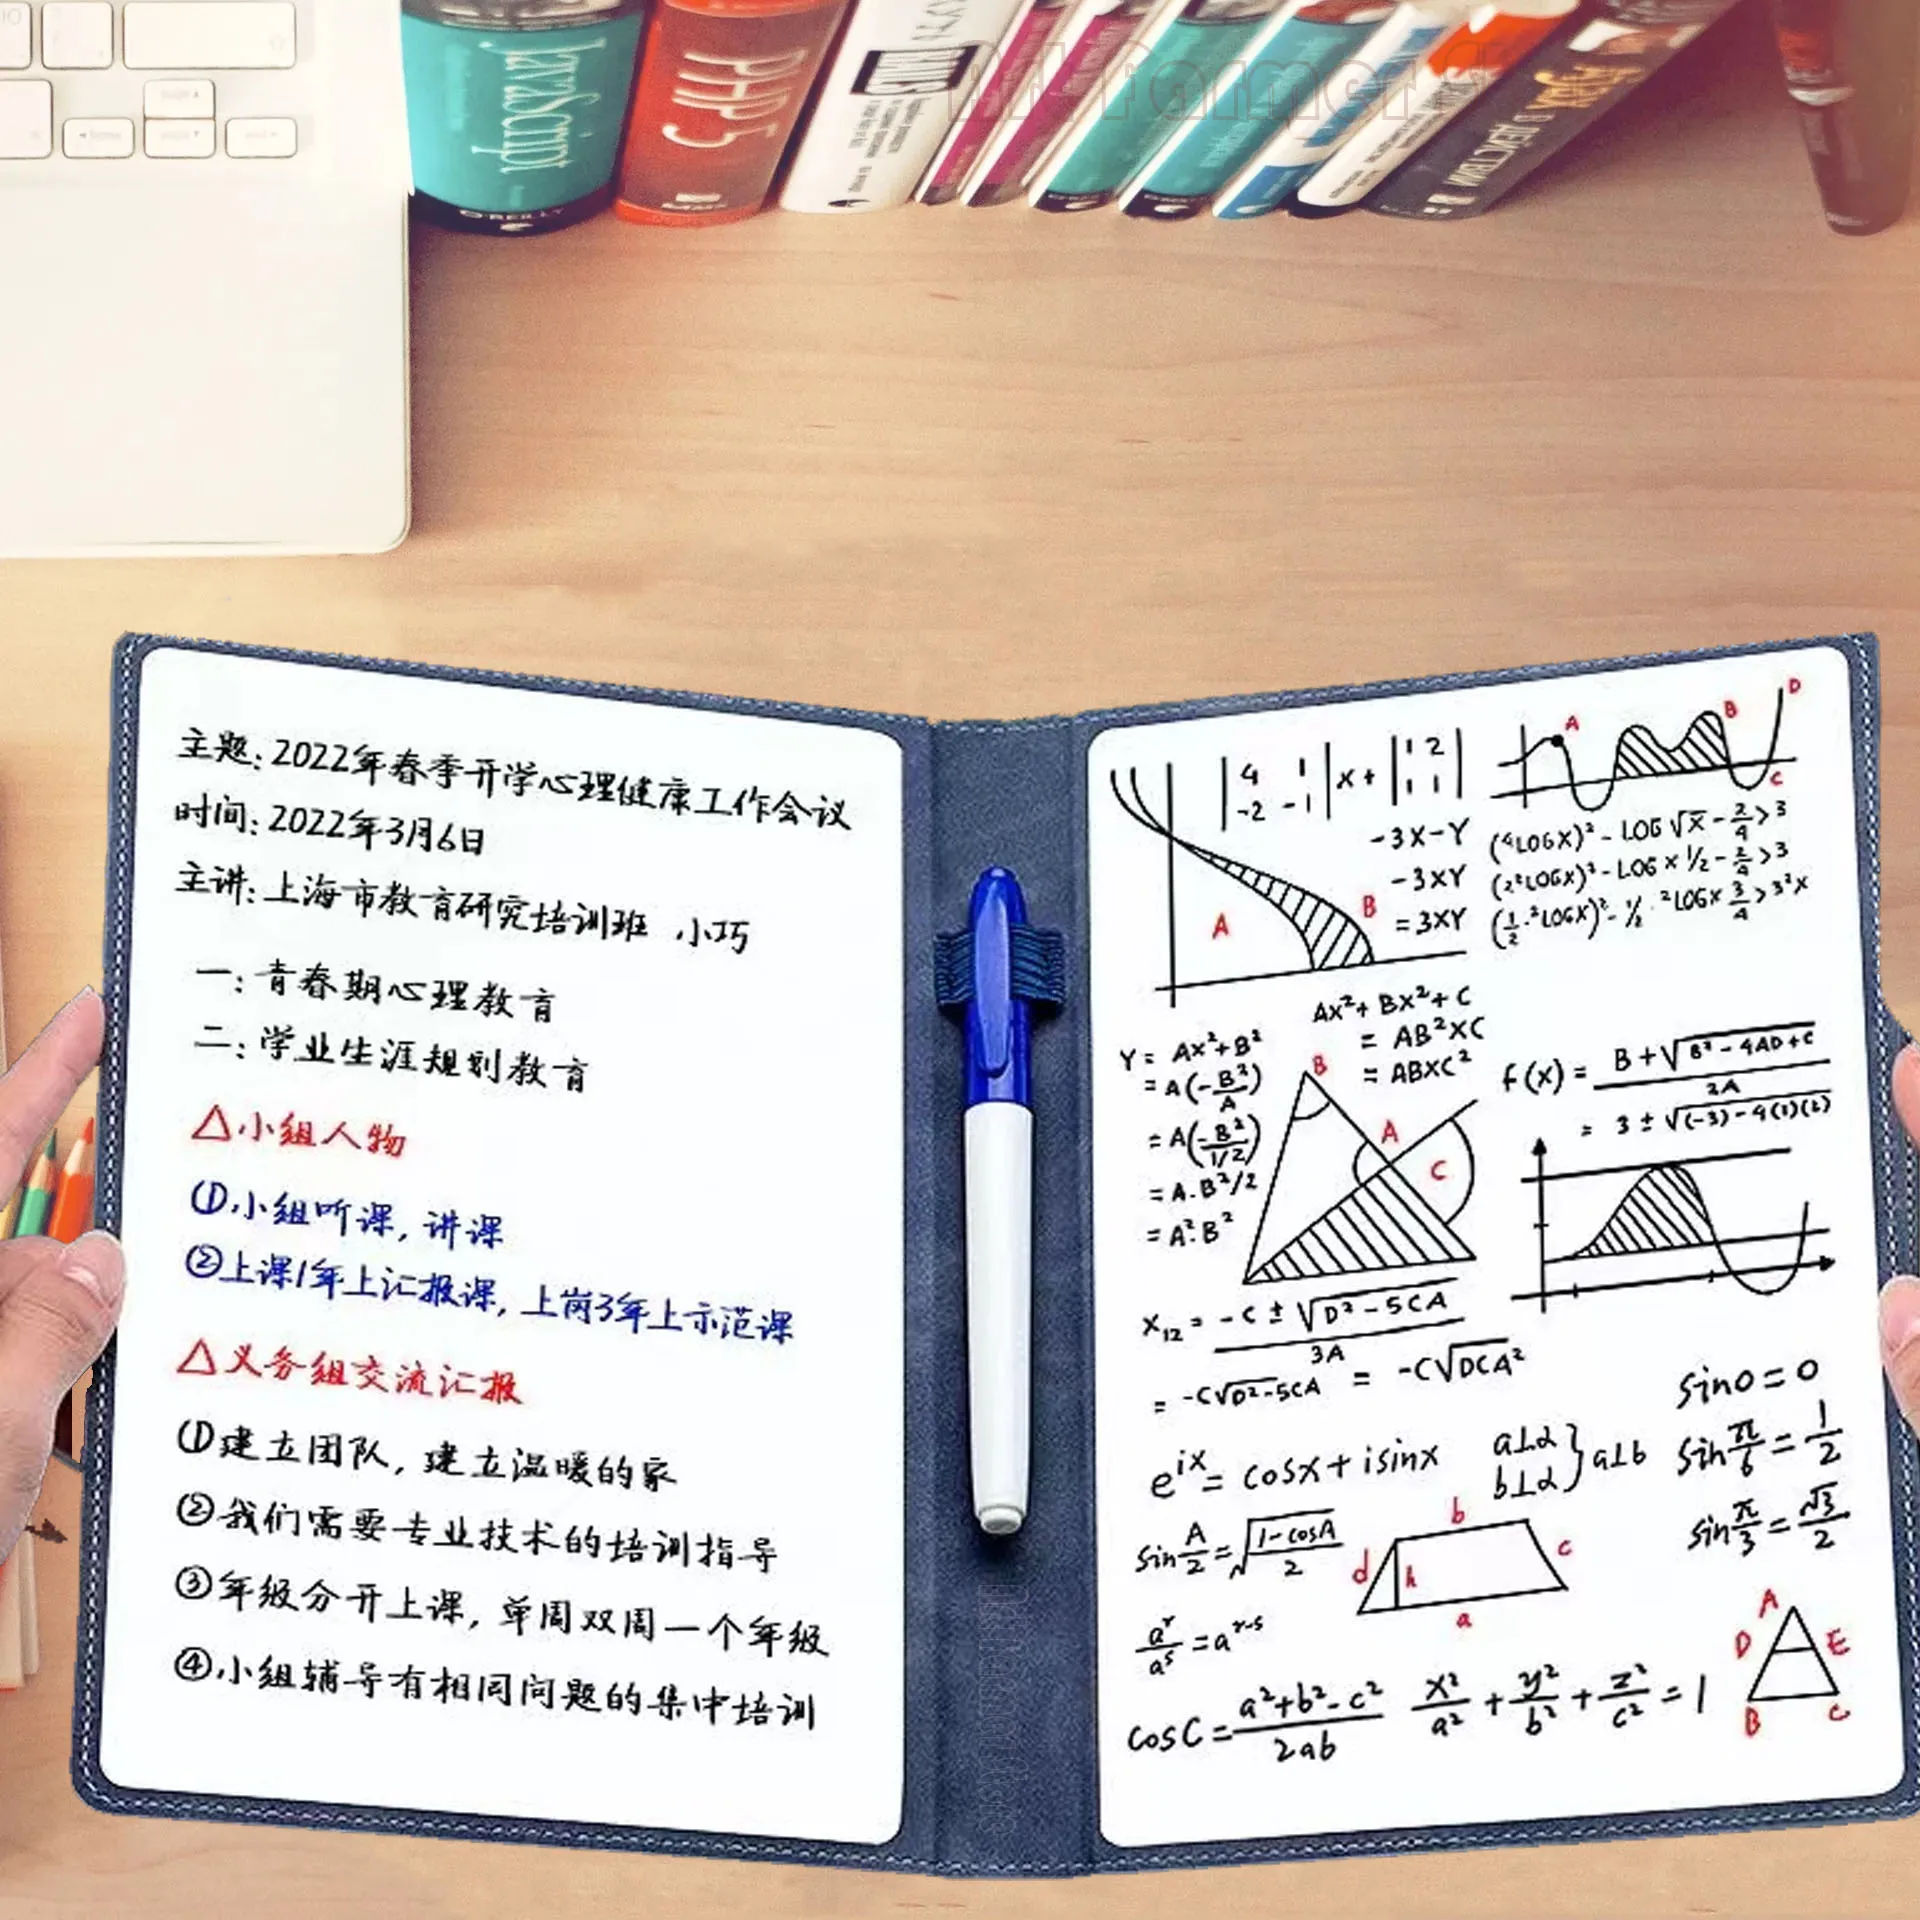 JavaScript
O'REILLY
PHP 5
主题:2022年春季开学心理健康工作会议
时间:2022年3月6日
主讲:上海市教育研究培训班 小巧
一:青春期心理教育
二:学业生涯规划教育
△小组人物
①小组听课,讲课
②上课1年上汇报课,上岗3年上示范课
△义务组交流汇报
①建立团队,建立温暖的家
②我们需要专业技术的培训指导
③年级分开上课,单周双周一个年级
④小组辅导有相同问题的集中培训
A B C D
|4 1 -2 -1| x + |1 2 1 1|
-3X-Y
-3XY
=3XY
A B
(⁴LOGX)² - LOG√X - 2/4 > 3
(2²LOGX)² - LOGX 1/2 - 2/4 > 3
(1/2·²LOGX)² - 1/2·²LOGX 3/4 > 3²X
AX²+BX²+C
= AB²XC
= ABXC²
Y = AX²+B²
= A(-B²/A)
= A(-B²/1/2)
= A.B²/2
= A².B²
B A C
f(x) = B+√B²-4AD+C / 2A
= 3±√(-3)-4(1)(2)
X₁₂ = -C±√D²-5CA / 3A
= -C√D²-5CA = -C√DCA²
sin0=0
e^ix = cosx+isinx
a⊥α
b⊥α } a⊥b
sin π/6 = 1/2
sin π/3 = √3/2
sin A/2 = √1-cosA / 2
b
d h c
a
a^r/a^s = a^r-s
A
D E
B C
cosC = a²+b²-c² / 2ab
x²/a² + y²/b² + z²/c² = 1